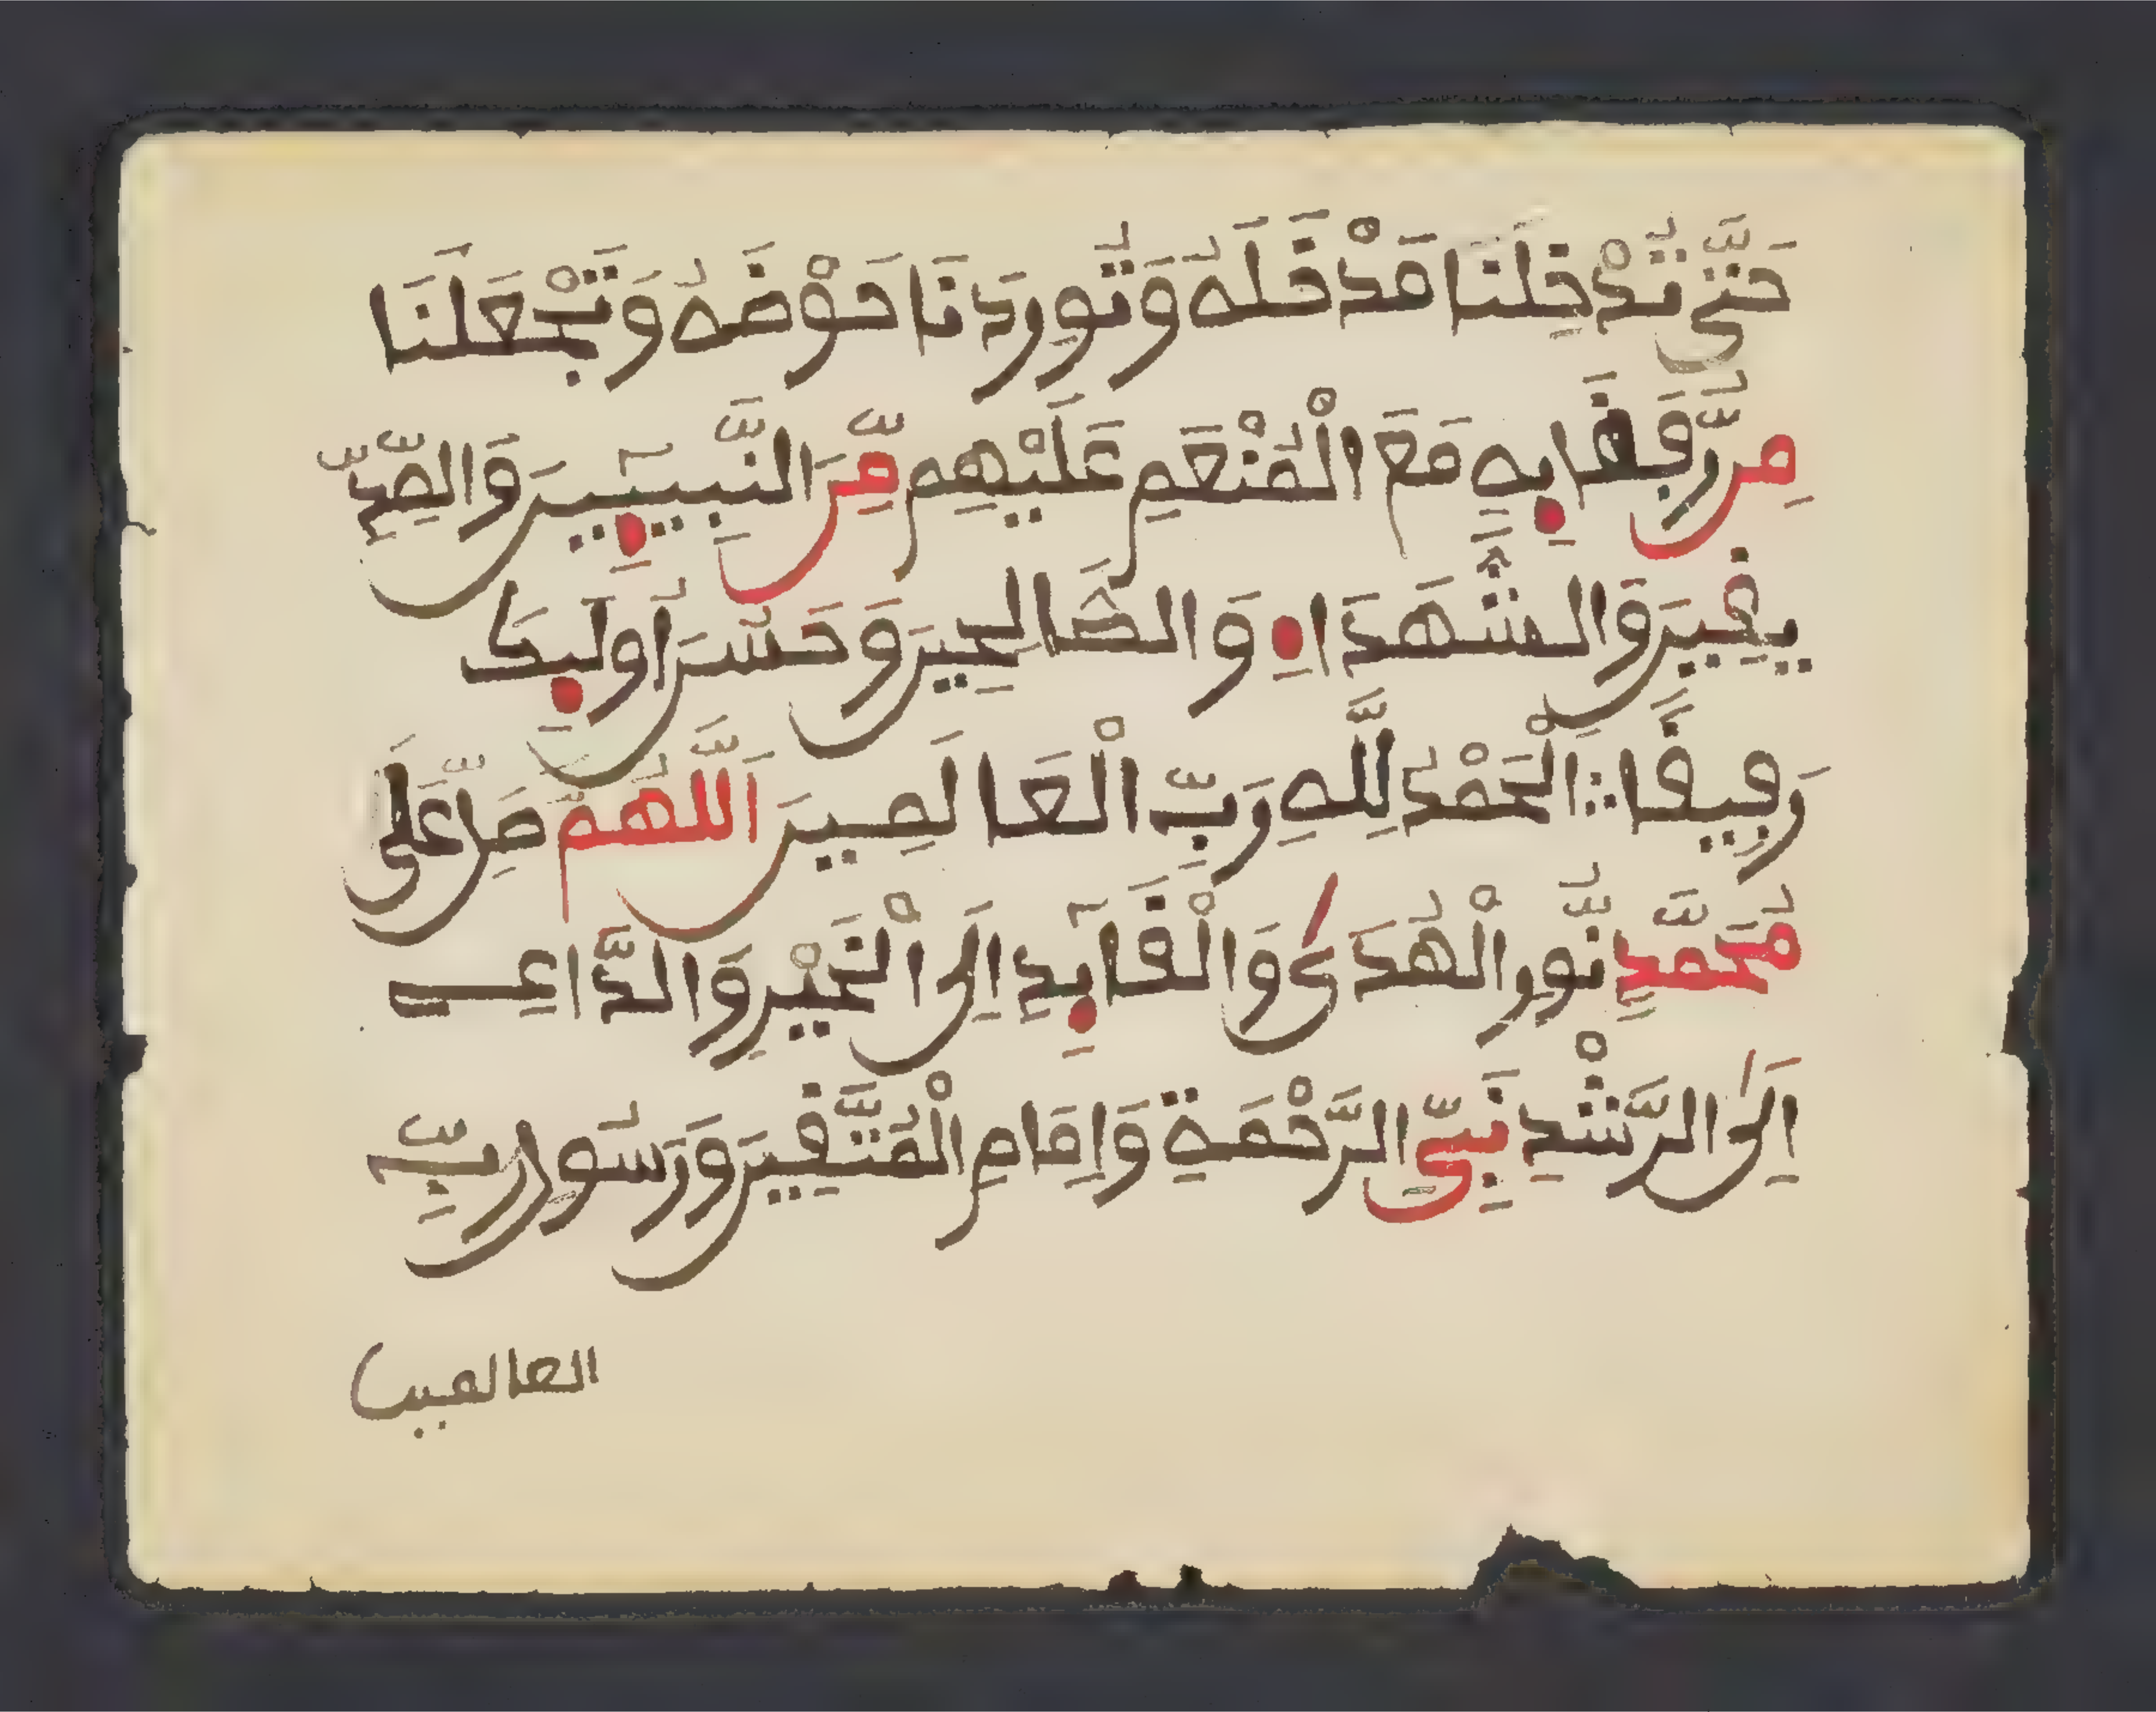 حَتَّىٰ تُدْخِلَنَا مَدْخَلَهُ وَتُورِدَنَا حَوْضَهُ وَتَجْعَلَنَا
مِن رُّفَقَائِهِ مَعَ الْمُنْعَمِ عَلَيْهِم مِّنَ النَّبِيـِٕينَ وَالصِّدِّ
يقِينَ وَالشُّهَدَاءِ وَالصَّالِحِينَ وَحَسُنَ أُولَئِكَ
رَفِيقًا ∴ اَلْحَمْدُ لِلَّهِ رَبِّ الْعَالَمِينَ اَللَّهُمَّ صَلِّ عَلَى
مُحَمَّدٍ نُّورِ الْهُدَىٰ وَالْقَائِدِ اِلَى الْخَيْرِ وَالدَّاعِي
اِلَى الرُّشْدِ نَبِيِّ الرَّحْمَةِ وَاِمَامِ الْمُتَّقِينَ وَرَسُولِ رَبِّ
العالمين